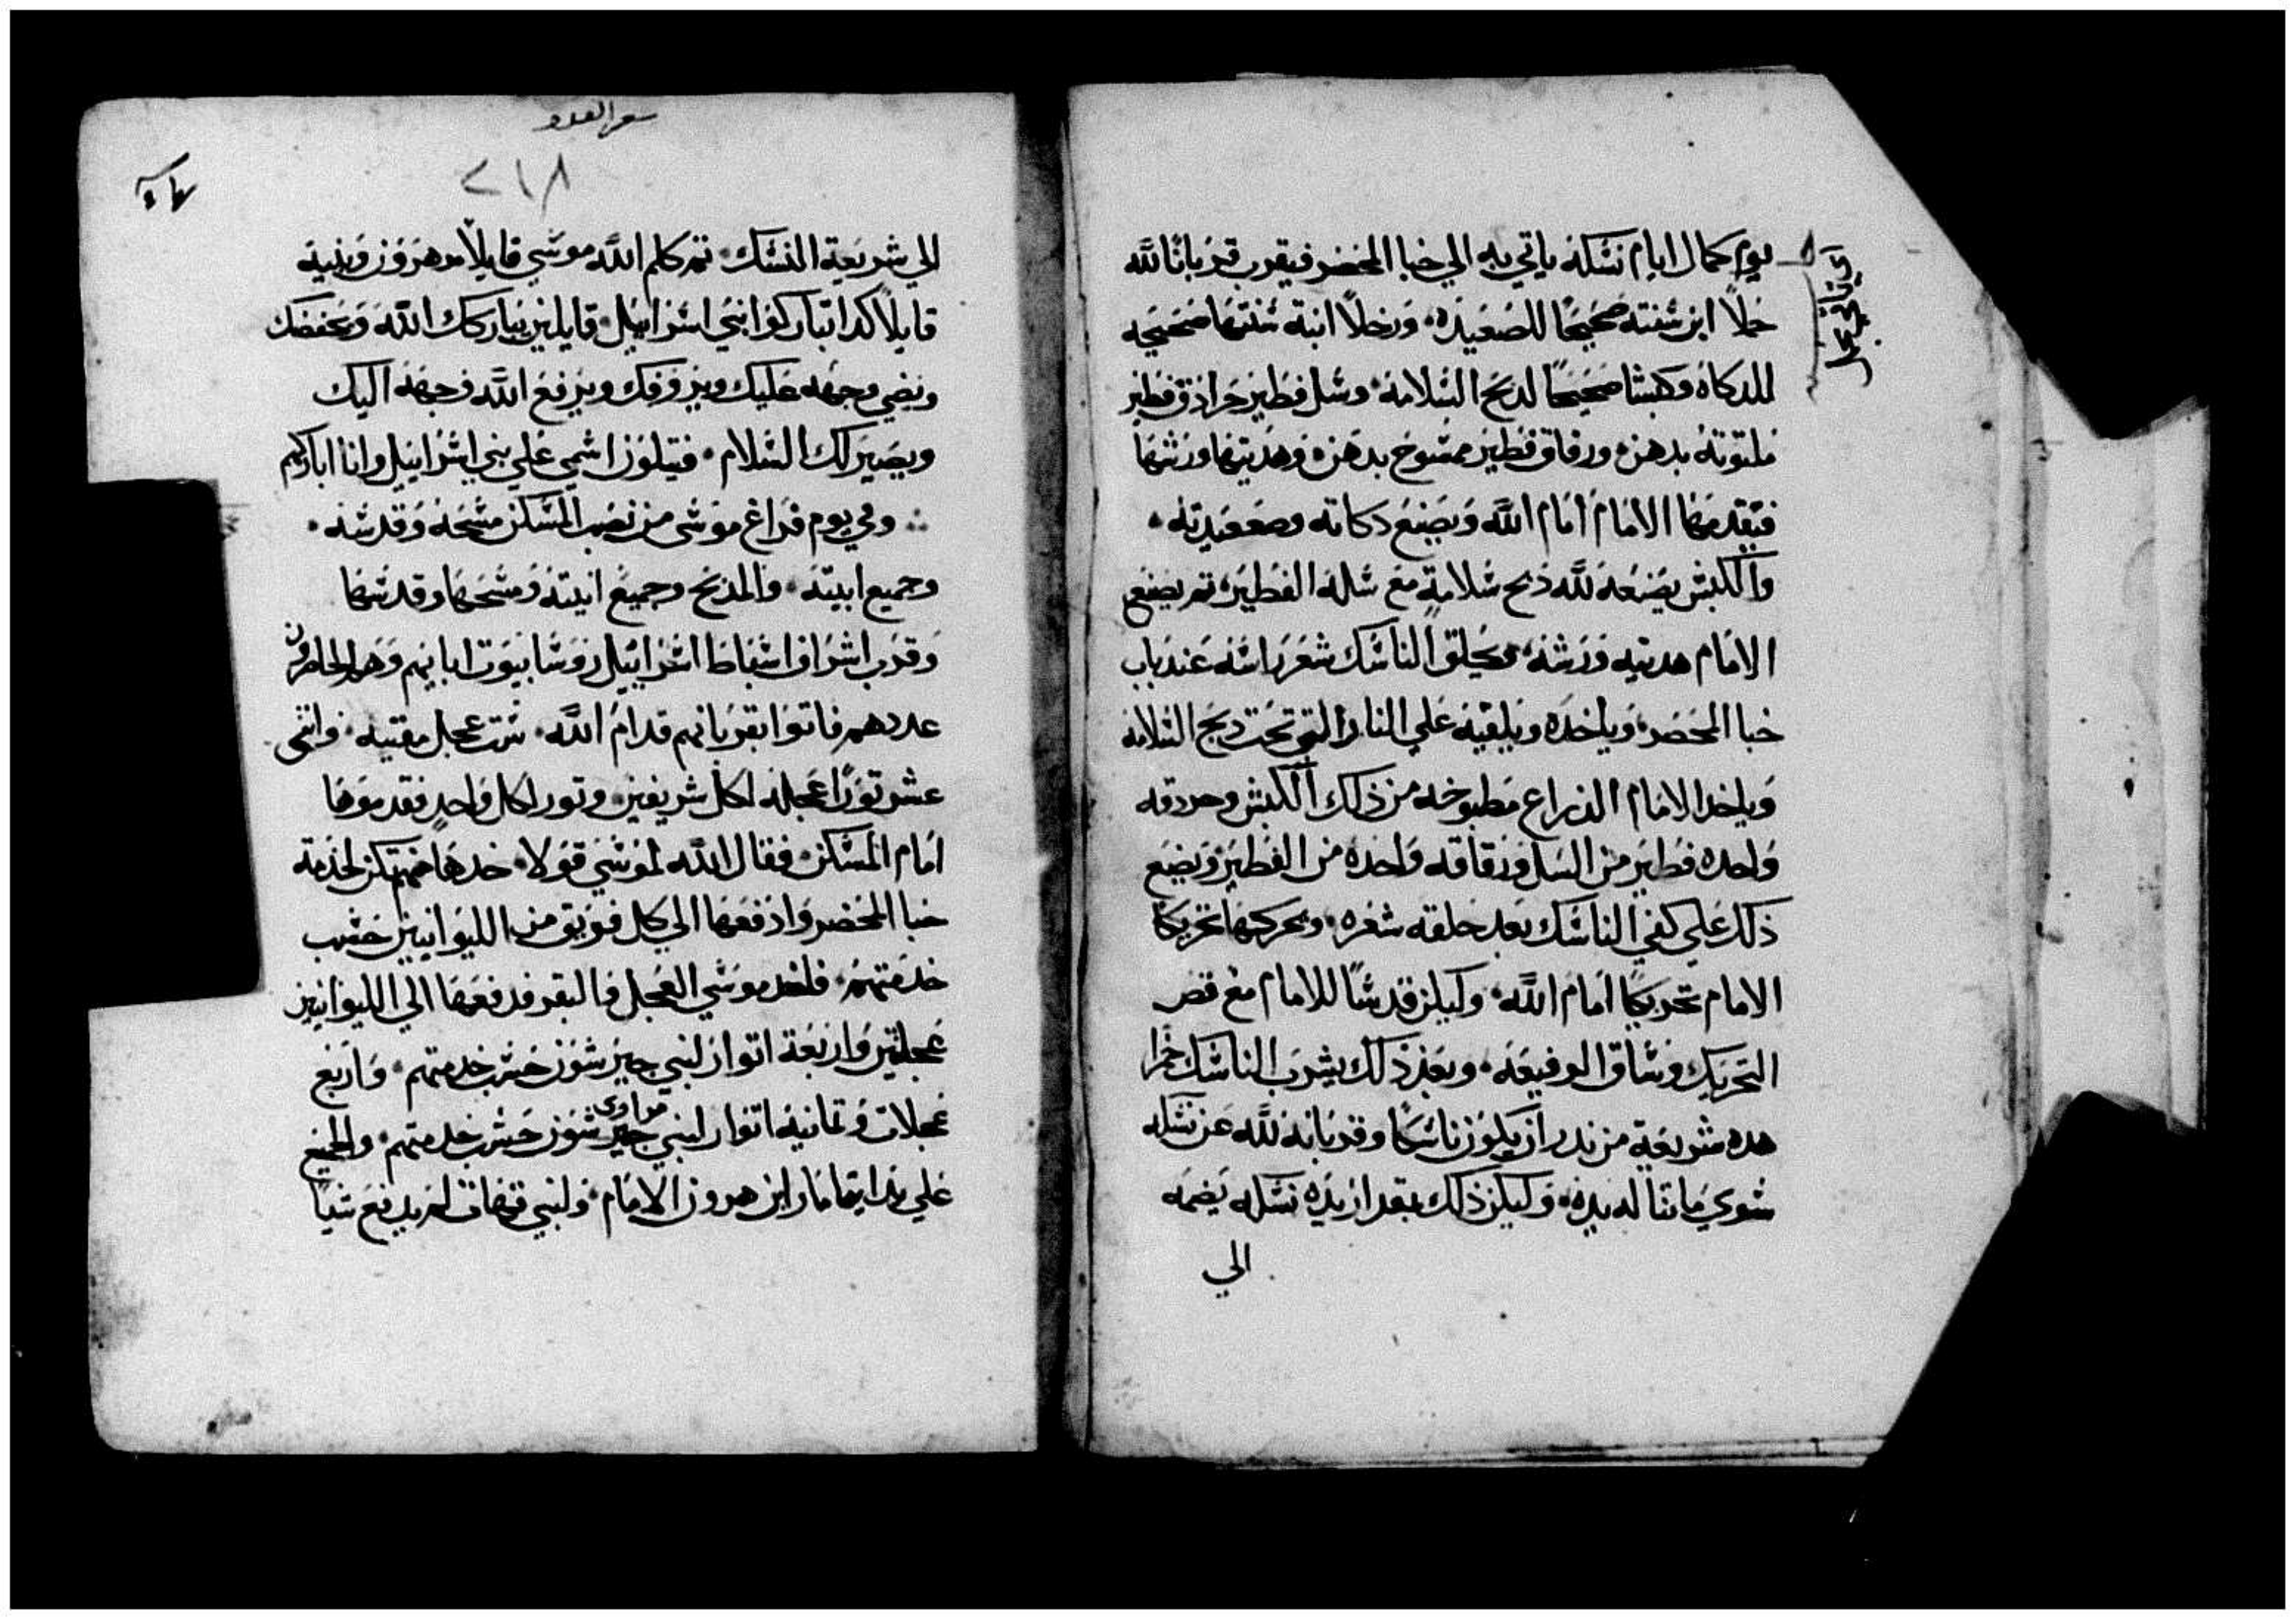 يوم كمال ايام نسكه ياتي به الي خبا المحضر فيقرب قربانا لله
حملاً ابن سنته صحيحًا للصعيده ورخلاً ابنة سنتها صحيحه
للدكاه وكبشا صحيحًا لدبح السلامه وسل فطير جرادق فطير
ملتوته بدهن ورقاق فطير ممسوح بدهن وهديتها ورشها
فيقدمها الامام امام الله ويصنع دكاته وصعيدته
والكبش يصنعه لله دبح سلامةٍ مع سلة الفطير ثم يصنع
الامام هديته ورشه ويحلق الناسك شعر راسه عند باب
خبا المحضر وياخده ويلقيه علي النار التي تحت دبح السلامه
وياخد الامام الدراع مطبوخه من ذلك الكبش وجردقه
واحده فطير من السل ورقاقه واحده من الفطير ويضع
ذلك علي كفي الناسك بعد حلقه شعره ويحركها تحريكا
الامام تحريكًا امام الله وليكن قدسًا للامام مع قص
التحريك وساق الرفيعه وبعد ذلك يشرب الناسك خمرا
هده شريعة من ندر ان يكون ناسكا وقربانه لله عن نسكه
سوي ما تنا له يده وليكن ذلك بقدر نده نسكه يضمه
الي
سفر العدد
٢١٨
الي شريعة النسك ثم كلم الله موسي قايلاً مر هرون وبنيه
قايلاً كدا تباركوا بني اسراييل قايلين يباركك الله ويحفضك
ويضي وجهه عليك ويرزقك ويرفع الله وجهه اليك
ويصير لك السلام فيتلون اسمي علي بني اسراييل وانا اباركهم
وفي يوم فراغ موسي من نصب المسكن مسحه وقدسه
وجميع انيته والمدبح وجميع انيته ومسحها وقدسها
وقرب اشراف اسباط اسراييل روسا بيوت ابايهم وهم الحاضرون
عددهم فاتوا بقربانهم قدام الله ست عجل مقتبه واثنى
عشر ثورًا عجله لكل شريفين وثور لكل واحدٍ فقدموها
امام المسكن فقال الله لموسي قولا خدها منهم تكن لخدمة
خبا المحضر وادفعها الي كل فريق من الليوانيين حسب
خدمتهم فاخد موسي العجل والبقر فدفعها الي الليوانيين
عجلتين واربعة اتوار لبني جيرشون حسب خدمتهم واربع
مراوي
عجلات وثمانية اتوار لبني جيرشون حسب خدمتهم والجميع
علي يد ايثامار ابن هرون الامام ولبني قهات لم يدفع شيًا